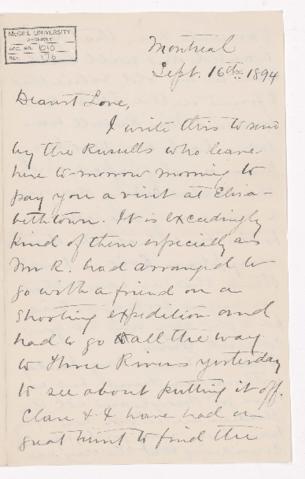 McGILL UNIVERSITY
ACC. NO. 1010
REF. 1/6
Montreal
Sept. 16th 1894
Dearest Love,
I write this to send
by the Russells who leave
here to-morrow morning to
pay you a visit at Eliza-
bethtown. It is exceedingly
kind of them especially as
Mr R. had arranged to
go with a friend on a
shooting expedition and
had to go all the way
to Three Rivers yesterday
to see about putting it off.
Clare & I have had a
great hunt to find the